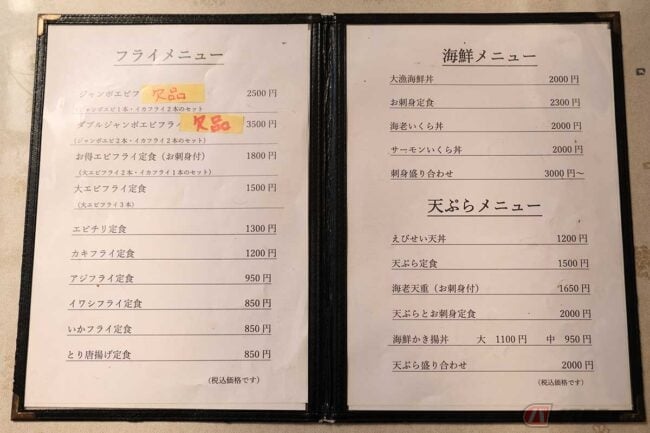 フライメニュー
ジャンボエビフ 欠品 2500円
(ジャンボエビ1本・イカフライ2本のセット)
ダブルジャンボエビフライ 欠品 3500円
(ジャンボエビ2本・イカフライ2本のセット)
お得エビフライ定食（お刺身付） 1800円
(大エビフライ2本・イカフライ1本のセット)
大エビフライ定食 1500円
(大エビフライ3本)
エビチリ定食 1300円
カキフライ定食 1200円
アジフライ定食 950円
イワシフライ定食 850円
いかフライ定食 850円
とり唐揚げ定食 850円
(税込価格です)
海鮮メニュー
大漁海鮮丼 2000円
お刺身定食 2300円
海老いくら丼 2000円
サーモンいくら丼 2000円
刺身盛り合わせ 3000円～
天ぷらメニュー
えびせい天丼 1200円
天ぷら定食 1500円
海老天重（お刺身付） 1650円
天ぷらとお刺身定食 2000円
海鮮かき揚丼 大 1100円 中 950円
天ぷら盛り合わせ 2000円
(税込価格です)